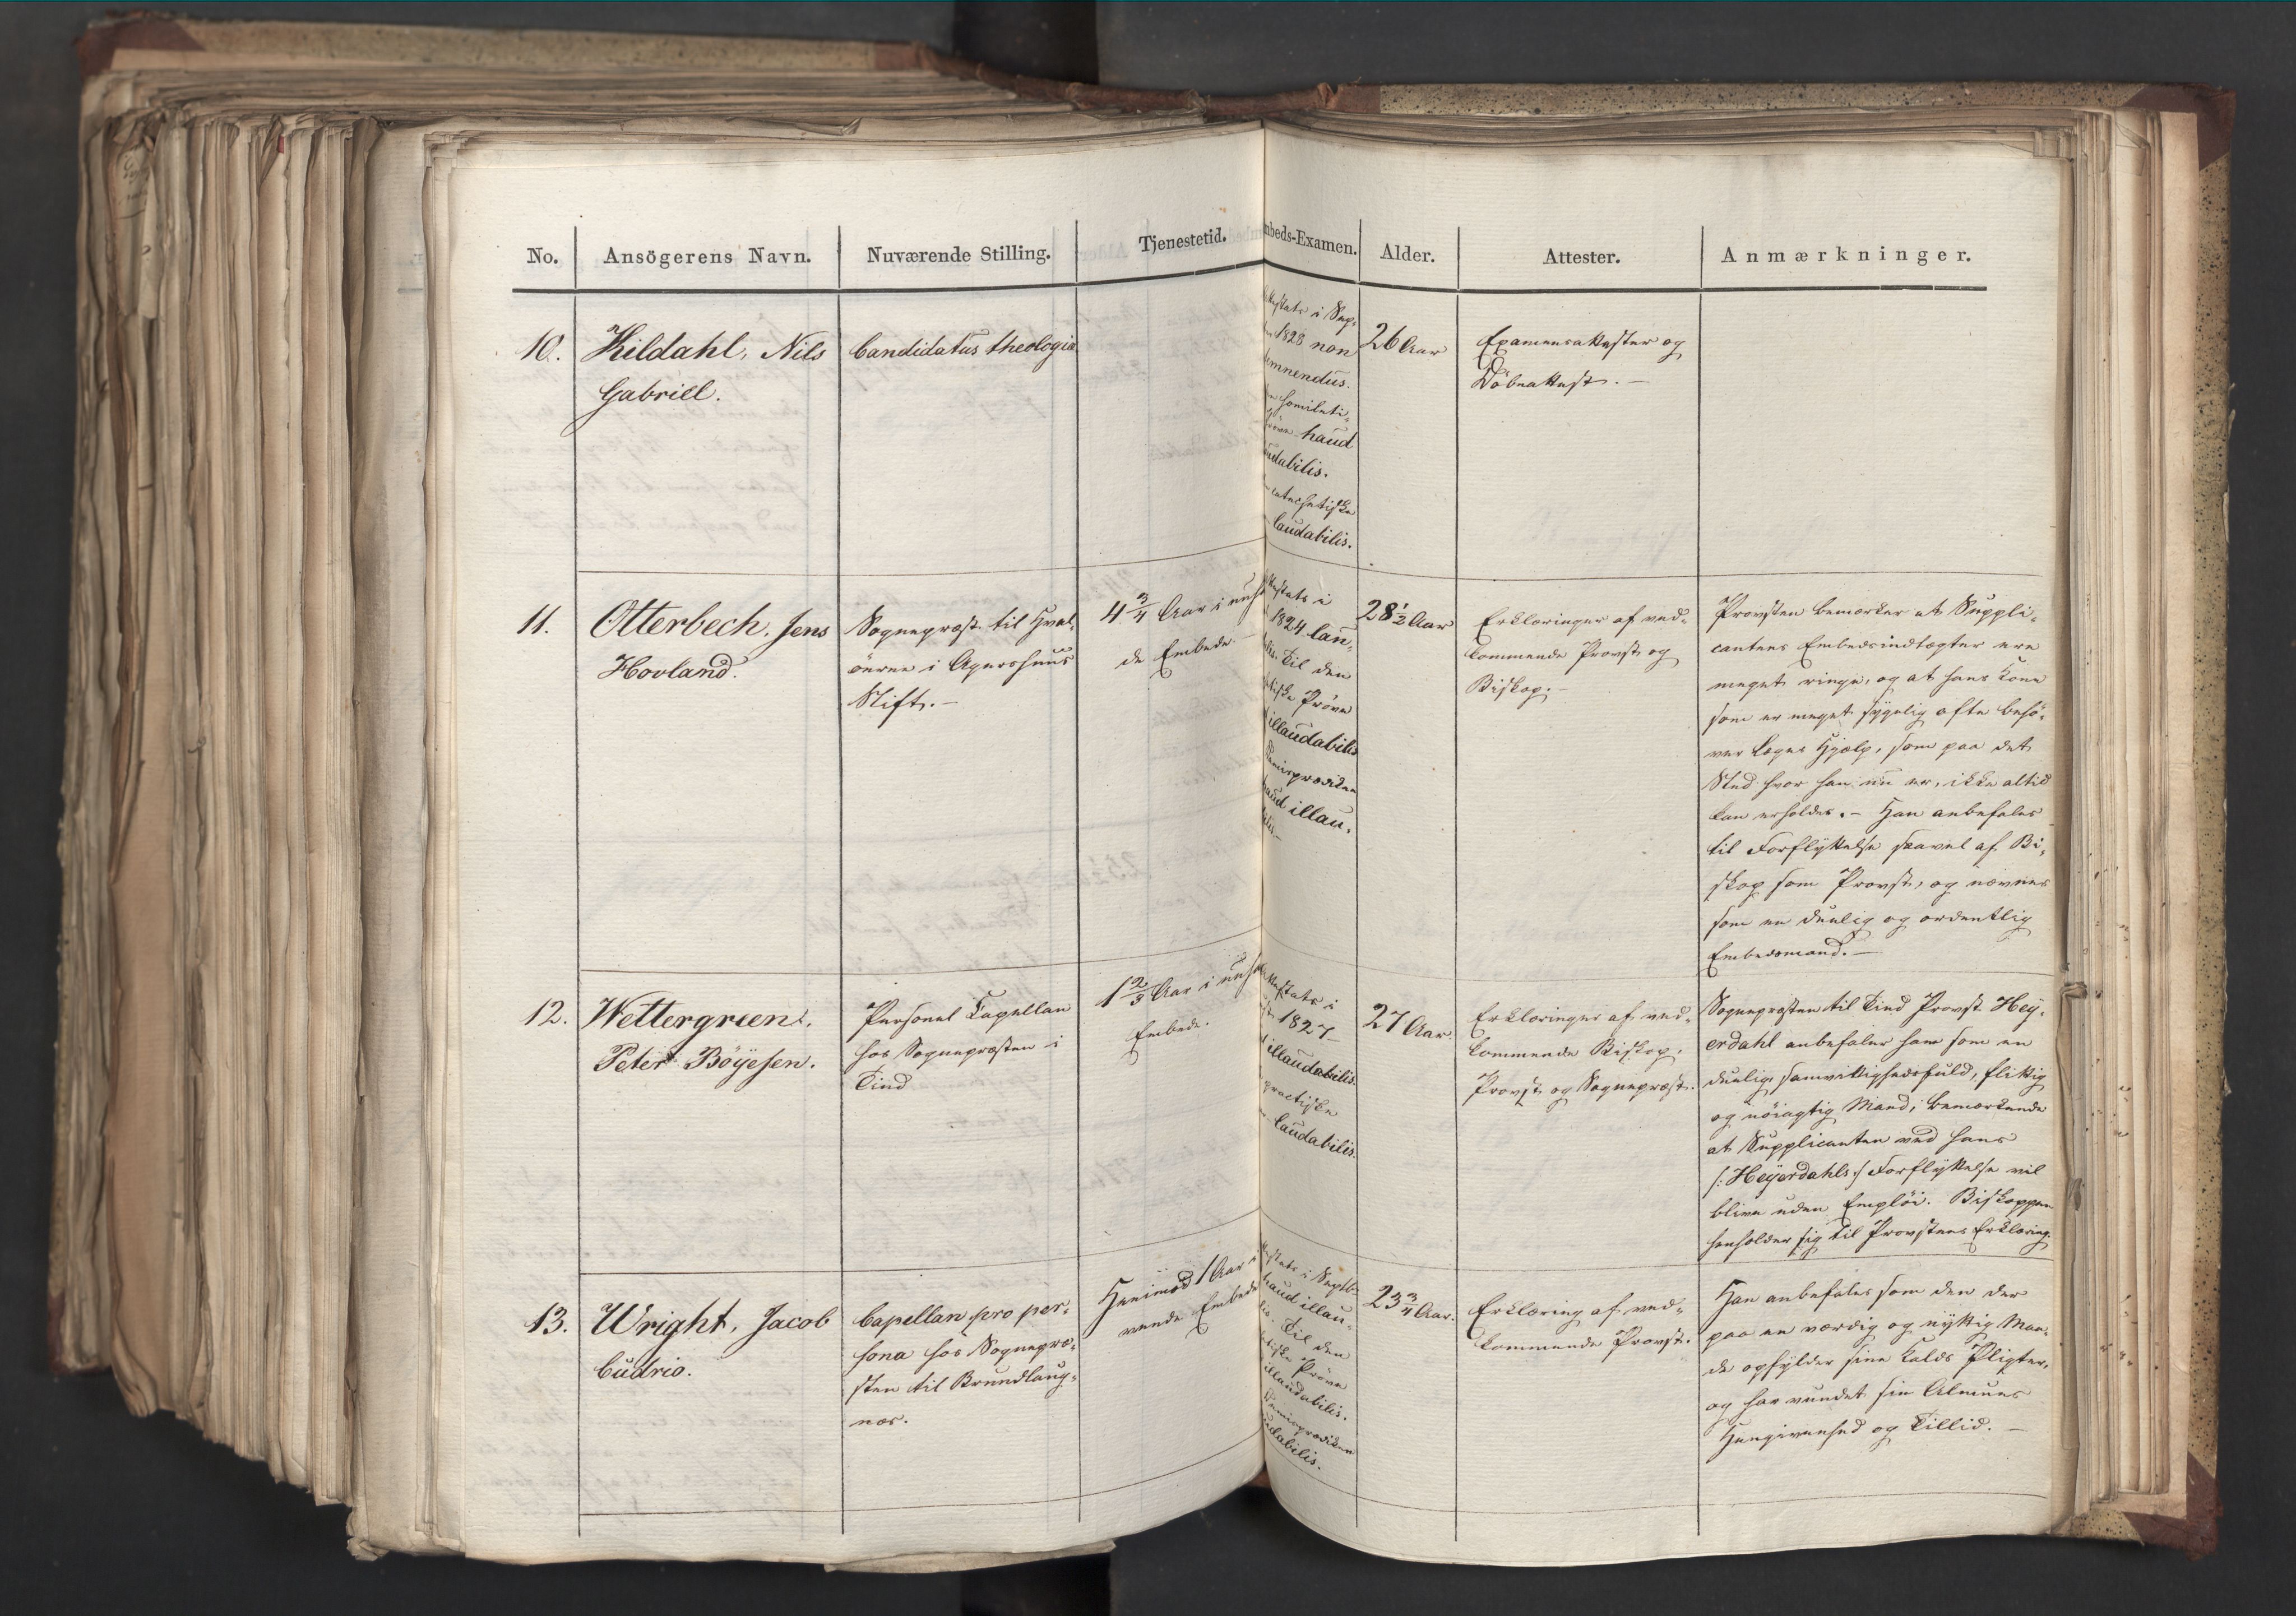 No. Ansögerens Navn. Nuværende Stilling. Tjenestetid. mbeds-Examen. Alder. Attester. Anmærkninger.
10.
Kildahl, Nils
Gabriel.
Candidatus theologiæ
testats i Sep-
1828 non
mnendus.
homileti-
haud
udabilis.
catechetiske
laudabilis.
26 Aar
Examensattester og
Döbeattest. —
11.
Otterbech, Jens
Hovland.
Sognepræst til Hval-
öerne i Agershuus
Stift. —
4 3/4 Aar i
de Embede
testats i
1824 lau-
Til den
tiske Pröve
illaudabilis
Dimisprædiken
haud illau-
28 1/2 Aar
Erklæringer af ved-
kommende Provst og
Biskop. —
Provsten bemærker at Suppli-
cantens Embedsindtægter ere
meget ringe, og at hans Kone
som er meget sygelig ofte behö-
ver Læges Hjælp, som paa det
Sted hvor han nu er, ikke altid
kan erholdes. — Han anbefales
til Forflyttelse saavel af Bi-
skop som Provst, og nævnes
som en duelig og ordentlig
Embedsmand. —
12.
Wettergreen,
Peter Böyesen.
Personel Capellan
hos Sognepræsten i
Tind
1 2/3 Aar i
Embede.
testats i
1827
illaudabilis.
practiske
laudabilis.
27 Aar
Erklæringer af ved-
kommende Biskop,
Provst og Sognepræst.
Sognepræsten til Tind Provst Hey-
erdahl anbefaler ham som en
duelig, samvittighedsfuld, flittig
og nöiagtig Mand; bemærkende
at Supplicanten ved hans
/: Heyerdahls :/ Forflyttelse vil
blive uden Emplöi. Biskoppen
henholder sig til Provstens Erklæring.
13.
Wright, Jacob
Cudrio.
Capellan pro per-
sona hos Sognepræ-
sten til Brundlaug-
næs.
Henimod 1 Aar i
værende Embede
testats i Septb.
haud illau-
Til den
tiske Pröve
illaudabilis.
Dimisprædiken
udabilis.
23 3/4 Aar.
Erklæring af ved-
kommende Provst.
Han anbefales som den der
paa en værdig og nyttig Maa-
de opfylder sine Kalds Pligter,
og har vundet sin Almues
Hengivenhed og Tillid. —